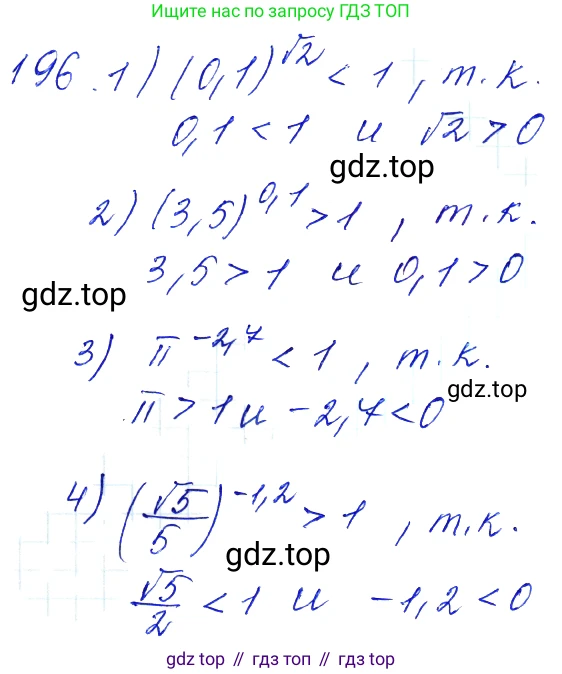 Ищите нас по запросу ГДЗ ТОП
196. 1) (0,1)^√2 < 1, т.к.
0,1 < 1 и √2 > 0
gdz.top
2) (3,5)^0,1 > 1, т.к.
3,5 > 1 и 0,1 > 0
gdz.top
3) π^-2,7 < 1, т.к.
gdz.top
π > 1 и -2,7 < 0
4) (√5/5)^-1,2 > 1, т.к.
gdz.top
√5/2 < 1 и -1,2 < 0
gdz top // гдз топ // gdz.top